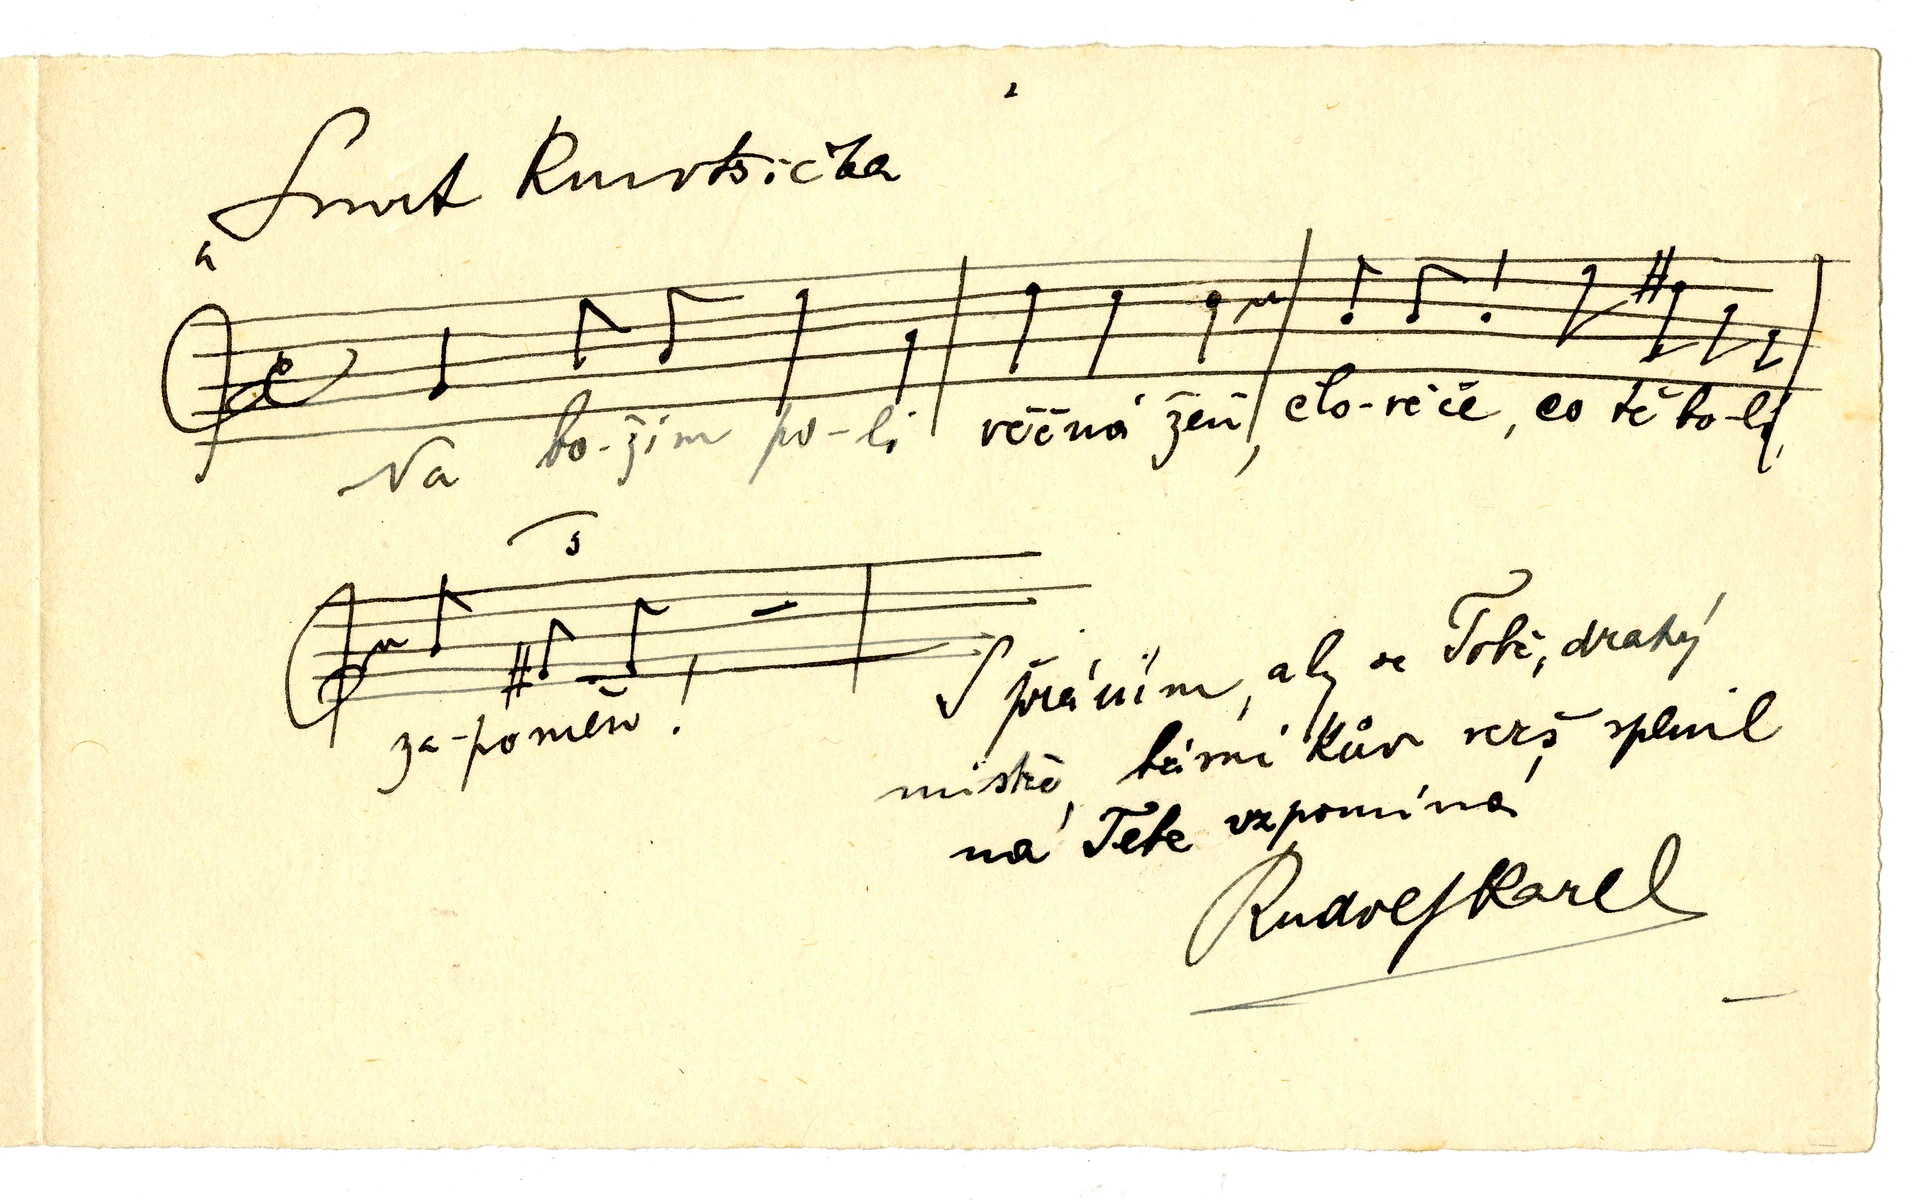 Smrt Kmotřička
Na bo-žím po-li věčná žeň, člo-věče, co tě bo-lí,
3
za-pomeň!
S přáním, aby se Tobě, drahý
mistře, básníkův verš splnil
na Tebe vzpomíná
Rudolf Karel